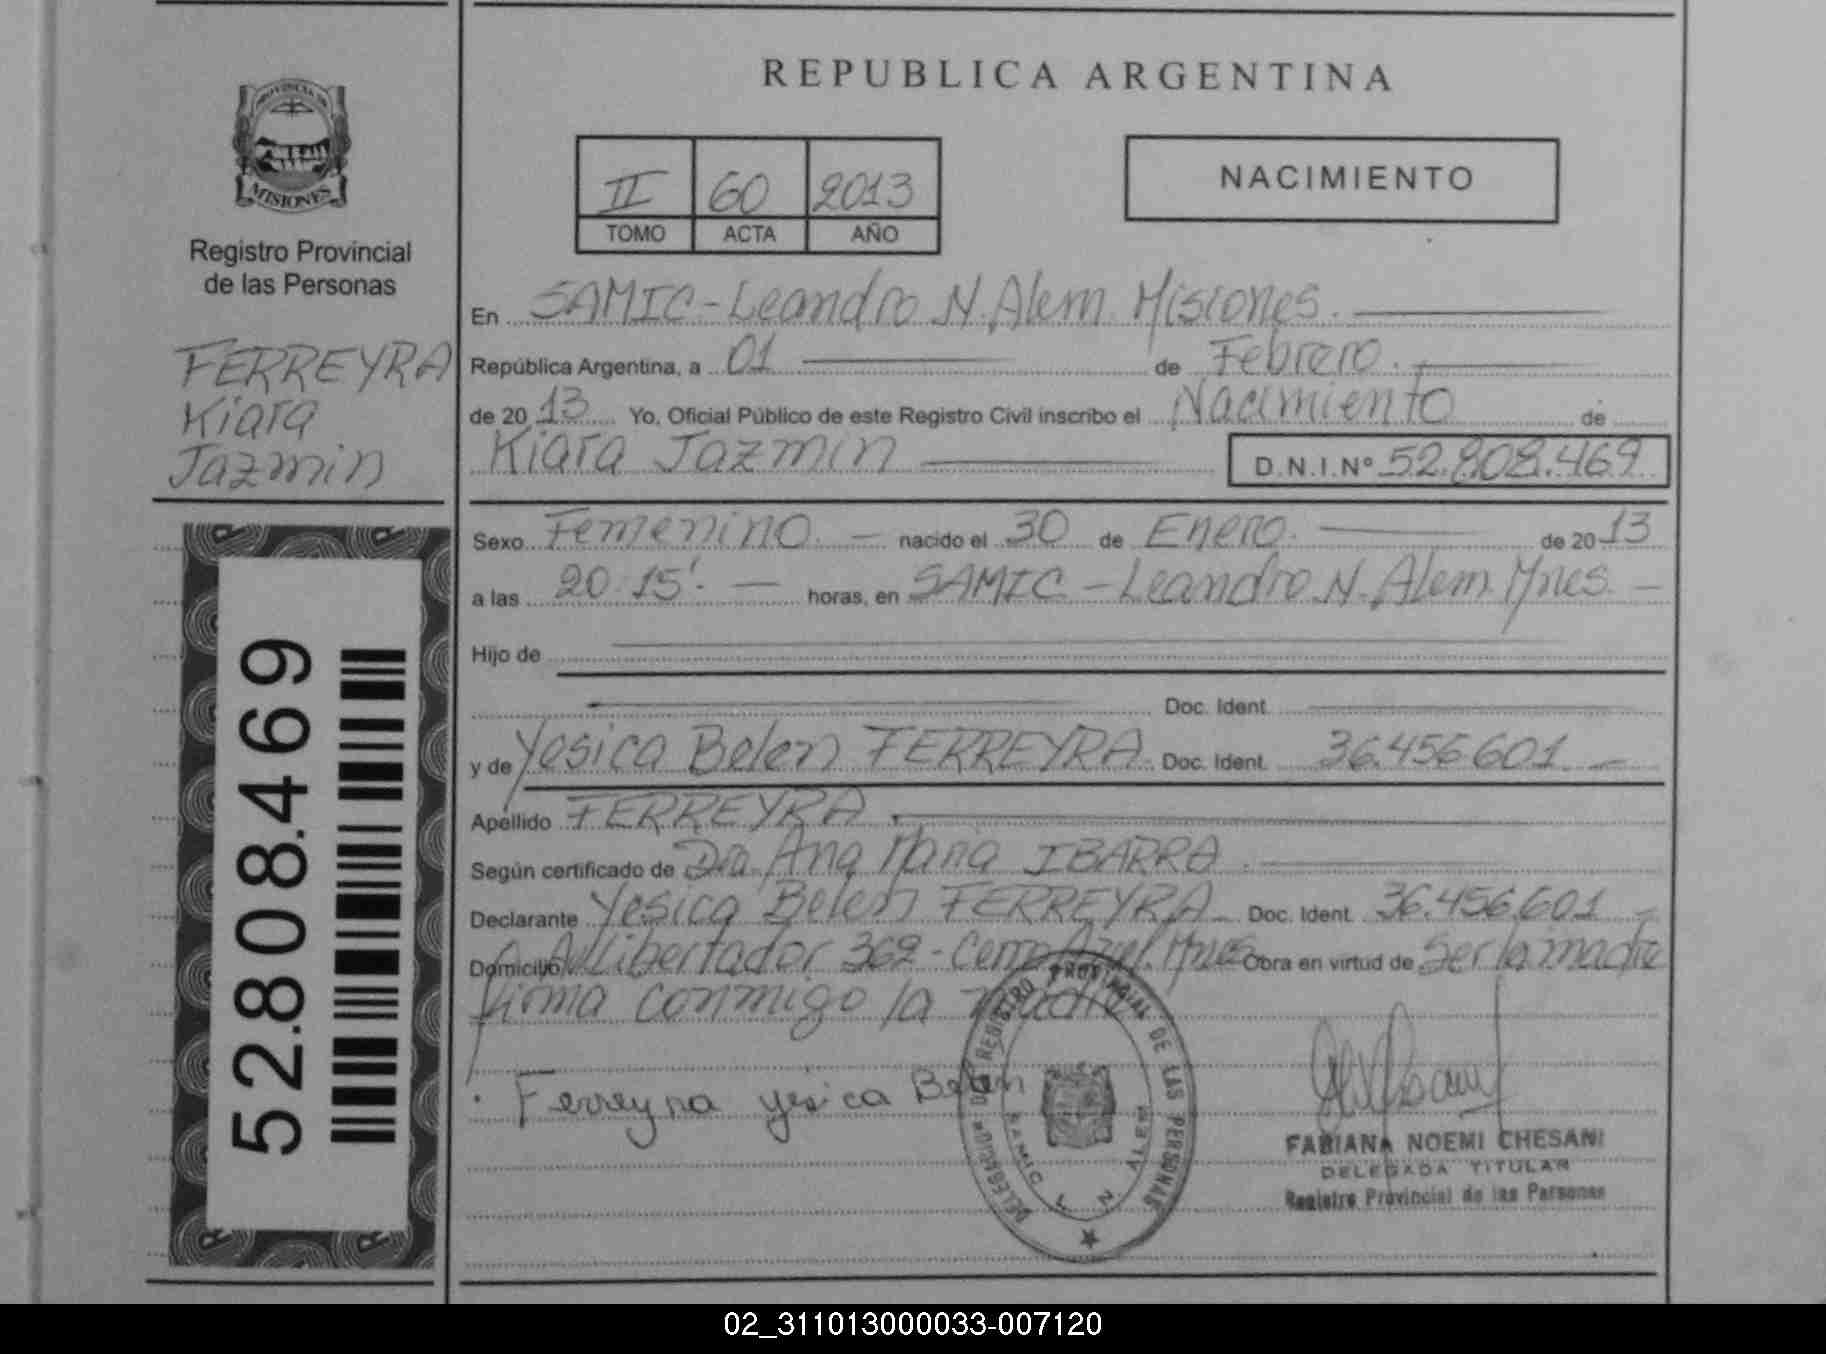 REPUBLICA ARGENTINA
PROVINCIA DE
MISIONES
Registro Provincial
de las Personas
FERREYRA
Kiara
Jazmin
52.808.469
II 60 2013
TOMO ACTA AÑO
NACIMIENTO
En SAMIC - Leandro N. Alem. Misiones.
República Argentina, a 01 de Febrero.
de 2013 Yo, Oficial Público de este Registro Civil inscribo el Nacimiento de
Kiara Jazmin D.N.I.Nº 52.808.469
Sexo Femenino. nacido el 30 de Enero. de 2013
a las 20:15'. horas, en SAMIC - Leandro N. Alem. Mnes.
Hijo de
Doc. Ident.
y de Yesica Belen FERREYRA. Doc. Ident. 36.456.601
Apellido FERREYRA.
Según certificado de Dra. Ana Maria IBARRA.
Declarante Yesica Belen FERREYRA Doc. Ident. 36.456.601
Domicilio Av. Libertador 369 - Cerro Azul. Mnes Obra en virtud de Ser la madre
firma conmigo la madre
Ferreyra yesica Belen
DELEGACION DEL REGISTRO PROVINCIAL DE LAS PERSONAS
SAMIC L N ALEM
FABIANA NOEMI CHESANI
DELEGADA TITULAR
Registro Provincial de las Personas
02_311013000033-007120